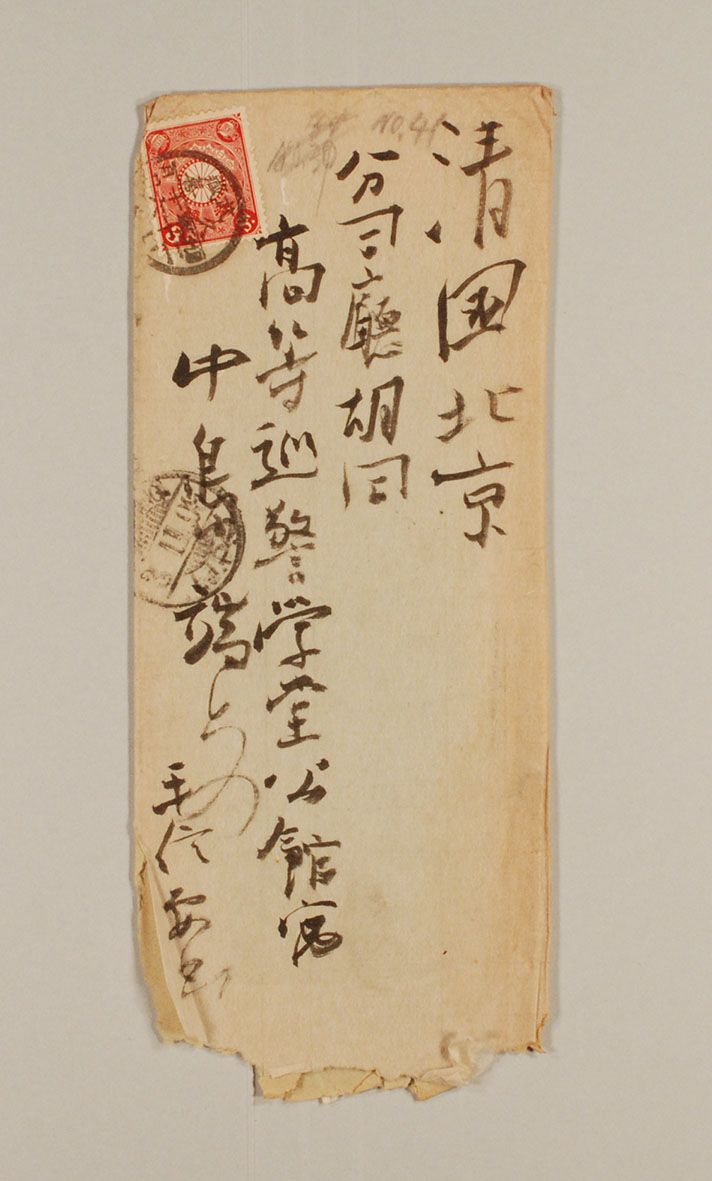 清国北京
分司廳胡同
高等巡警学堂公館寓
中島端
平信要
No.41